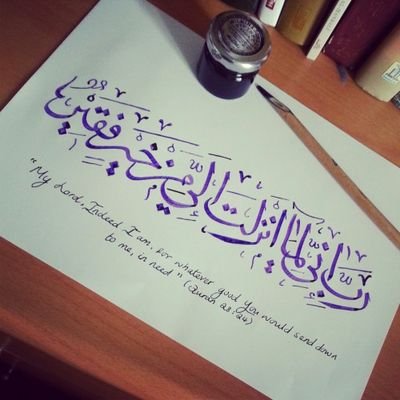 رَبِّ إِنِّي لِمَا أَنْزَلْتَ إِلَيَّ مِنْ خَيْرٍ فَقِيرٌ
"My Lord, Indeed I am, for whatever good You would send down
to me, in need"
(Quran 28:24)